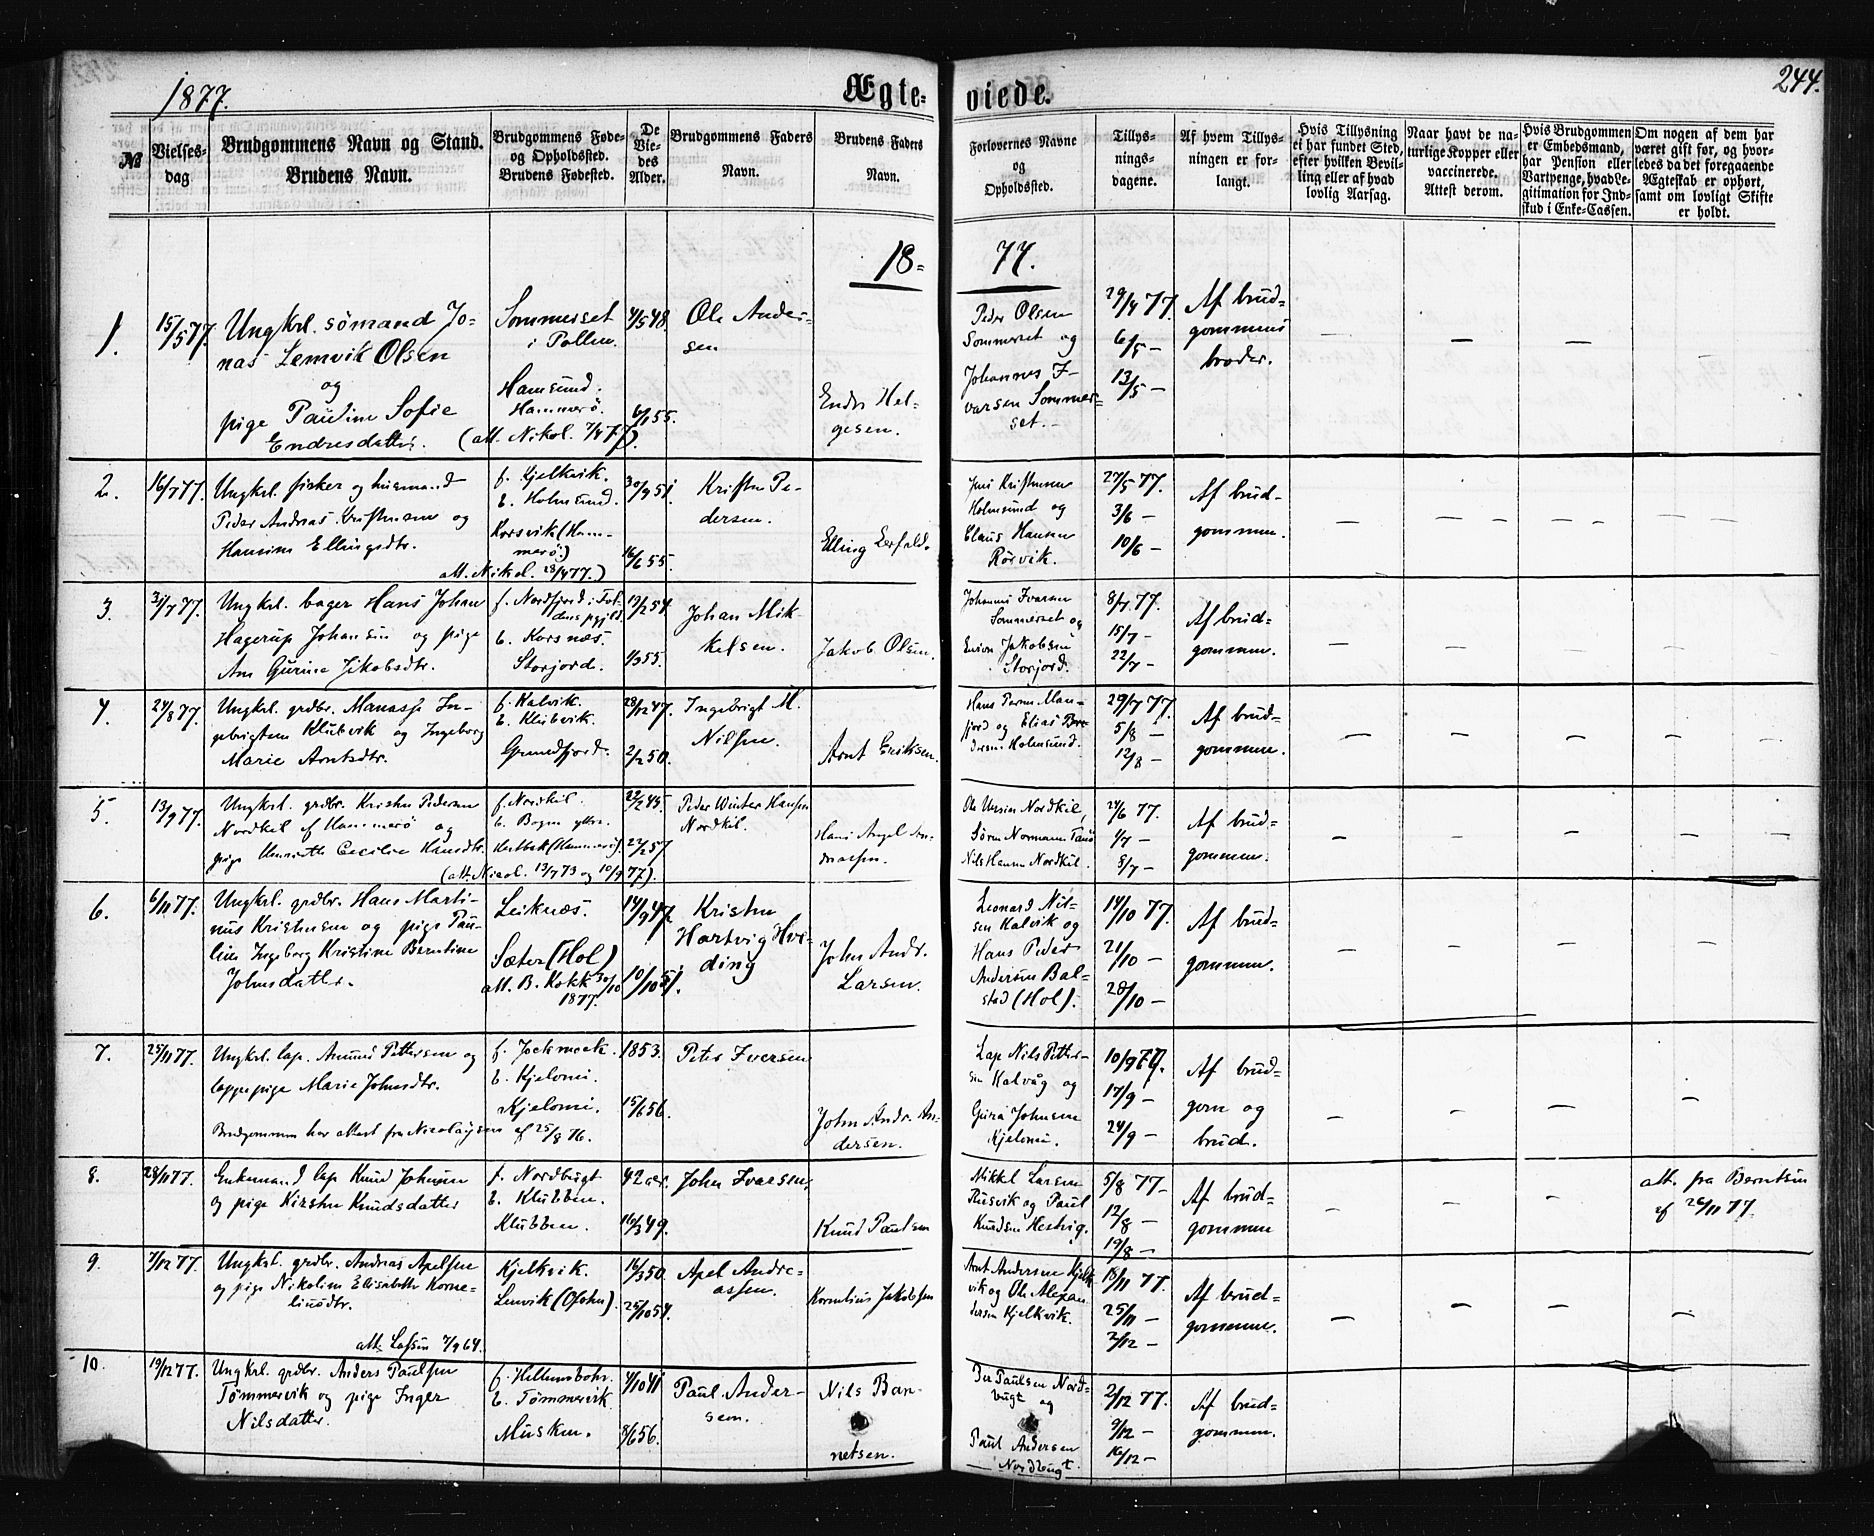 1877.
Ægte-
viede.
244.
№
Vielses-
dag
Brudgommens Navn og Stand.
Brudens Navn.
Brudgommens Føde-
og Opholdssted.
Brudens Fødested.
De
Vie-
des
Alder.
Brudgommens Faders
Navn.
Brudens Faders
Navn.
Forlovernes Navne
og
Opholdssted.
Tillys-
nings-
dagene.
Af hvem Tillys-
ningen er for-
langt.
Hvis Tillysning
ei har fundet Sted,
efter hvilken Bevil-
ling eller af hvad
lovlig Aarsag.
Naar havt de na-
turlige Kopper eller
vaccinerede.
Attest derom.
Hvis Brudgommen
er Embedsmand,
har Pension eller
Vartpenge, hvad Le-
gitimation for Ind-
skud i Enke-Cassen.
Om nogen af dem har
været gift før, og hvor-
ledes da det foregaaende
Ægteskab er ophørt,
samt om lovligt Skifte
er holdt.
18-
77.
1.
15/5 77.
Ungkrl. sömand Jo-
nas Lemvik Olsen
og
pige Pauline Sofie
Endresdatter.
Sommerset
i Pollen.
Hamsund.
Hammerö.
(att. Nikol. 7/4 77).
4/5 48.
6/1 55.
Ole Ander-
sen
Endre Hel-
gesen.
Peder Olsen
Sommerset og
Johannes I-
varsen Sommer-
set.
29/4 77.
6/5 —
13/5 —
Af brud-
gommens
broder.
2.
16/7 77.
Ungkrl. fisker og husmand
Peder Andreas Kristensen og
Hansine Ellingsdtr.
f. Kjelkvik.
b. Holmsund.
Korsvik (Ham-
merö.)
att. Nikol. 28/4 77.)
30/9 51.
16/6 55.
Kristen Pe-
dersen.
Elling
Jens Kristensen
Holmsund og
Claus Hansen
Rörvik.
27/5 77.
3/6 —
10/6 —
Af brud-
gommen.
3.
31/7 77.
Ungkrl. bager Hans Johan
Hagerup Johansen og pige
Ane Gurine Jakobsdtr.
f. Nordfjord i Fol-
dens pgjld.
b. Korsnæs.
Storjord.
13/2 54.
1/3 55.
Johan Mik-
kelsen.
Jakob Olsen.
Johannes Ivarsen
Sommerset og
Jakobsen
Storjord.
8/7 77.
15/7 —
22/7 —
Af brud-
gommen.
4.
24/8 77.
Ungkrl. grdbr. Manasse In-
gebrigtsen Klubvik og Ingeborg
Marie Arntsdtr.
f. Kalvik.
b. Klubvik.
Grundfjord.
28/12 47.
2/2 50.
Ingebrigt M.
Nilsen.
Arnt Eriksen.
Hans
fjord og Elias
Holmsund.
29/7 77.
5/8 —
12/8 —
Af brud-
gommen.
5.
13/9 77.
Ungkrl. grdbr. Kristen Pedersen
Nordkil af Hammerö og
pige Henriette Cecilie Hansdtr.
f. Nordkil.
b. Bogen
(Hammerö).
(att. Nicol. 13/7 73 og 10/9 77).
22/2 45.
27/2 57
Peder Winter Hansen
Nordkil.
Hans Angel An-
dreassen.
Ole Nordkil,
Sören Normann
Nils Hansen Nordkil.
24/6 77.
1/7 —
8/7 —
Af brud-
gommen.
6.
6/11 77.
Ungkrl. grdbr. Hans Marti-
nus Kristensen og pige Pau-
line Ingeborg Kristine Berntine
Johnsdatter.
Leiknæs.
Sæter (Hol)
att. B. Kokk 30/10
1877.
14/9 47.
10/10 51.
Kristen
Hartvig Hvi-
ding
John Andr.
Larsen.
Leonard Nil-
sen Kalvik og
Hans Peder
Andersen Bal-
stad (Hol).
14/10 77.
21/10 —
28/10 —
Af brud-
gommen.
7.
25/11 77.
Ungkrl. lap. Amund Pettersen og
lappepige Marie Johnsdtr.
Brudgommen har attest fra Nicolaysen af 25/8 76.
f. Jockmock.
b. Kjelomi.
Kjelomi.
1853.
15/6 56.
Peter Iversen
John Andr. An-
dersen.
Lap Nils Petter-
sen Kalvåg og
Johnsen
Kjelomi.
10/9 77.
17/9 —
24/9 —
Af brud-
gom og
brud.
8.
28/11 77.
Enkemand lap Knud Johnsen
og pige Kirsten Knudsdatter
f. Nordbugt
b. Klubben.
Klubben.
42 aar.
16/3 49.
John Ivarsen,
Knud Paulsen
Mikkel Larsen
Rusvik og Paul
Knudsen
5/8 77 —
12/8 —
19/8 —
Af brud-
gommen
att. fra Berntsen
af 26/11 77.
9.
7/12 77.
Ungkrl. grdbr. Andreas Apelsen
og pige Nikoline Elisabeth Korne-
liusdtr.
att. Lassen 7/9 64.
Kjelkvik.
Lenvik (Ofoten).
16/3 50.
25/10 54.
Apel Andre-
assen.
Kornelius Jakobsen
Arnt Andersen Kjelk-
vik og Ole Alexan-
dersen Kjelkvik.
18/11 77.
25/11 —
2/12 —
Af brud-
gommen.
10.
19/12 77.
Ungkrl. grdbr. Anders Paulsen
Tömmervik og pige Inger
Nilsdatter.
f. Hellemobotn.
b. Tömmervik.
Musken.
4/10 41
8/6 56.
Paul Ander-
sen.
Nils Bar-
netsen.
Per Paulsen Nord-
bugt og
Paul Andersen
Nordbugt.
2/12 77.
9/12 —
16/12 —
Af brud-
gommen.